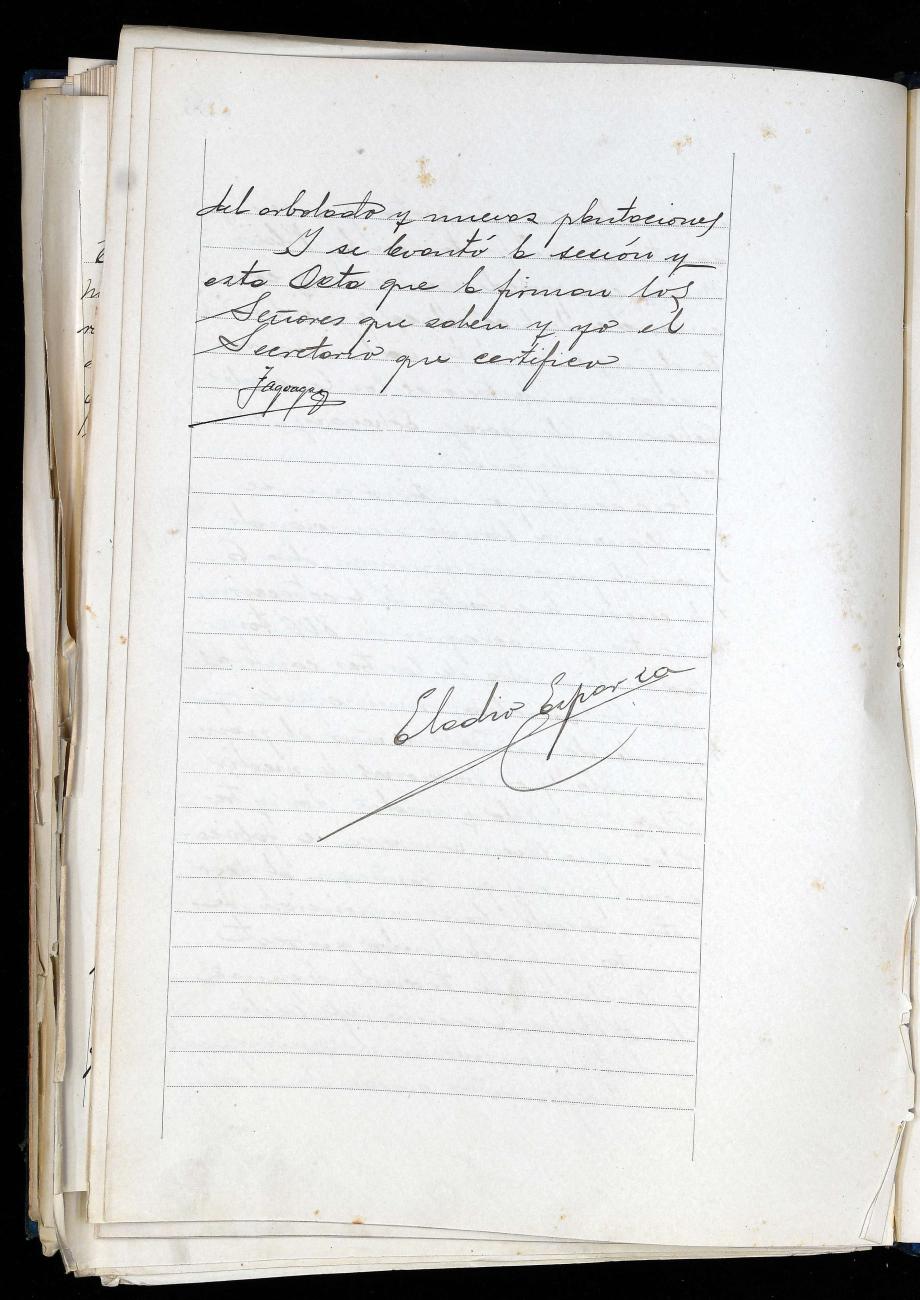 del arbolado y nuevas plantaciones
Y se levantó la sesión y
esta Acta que la firman los
Señores que saben y yo el
Secretario que certifico
Jagoaga
Eladio Esparza